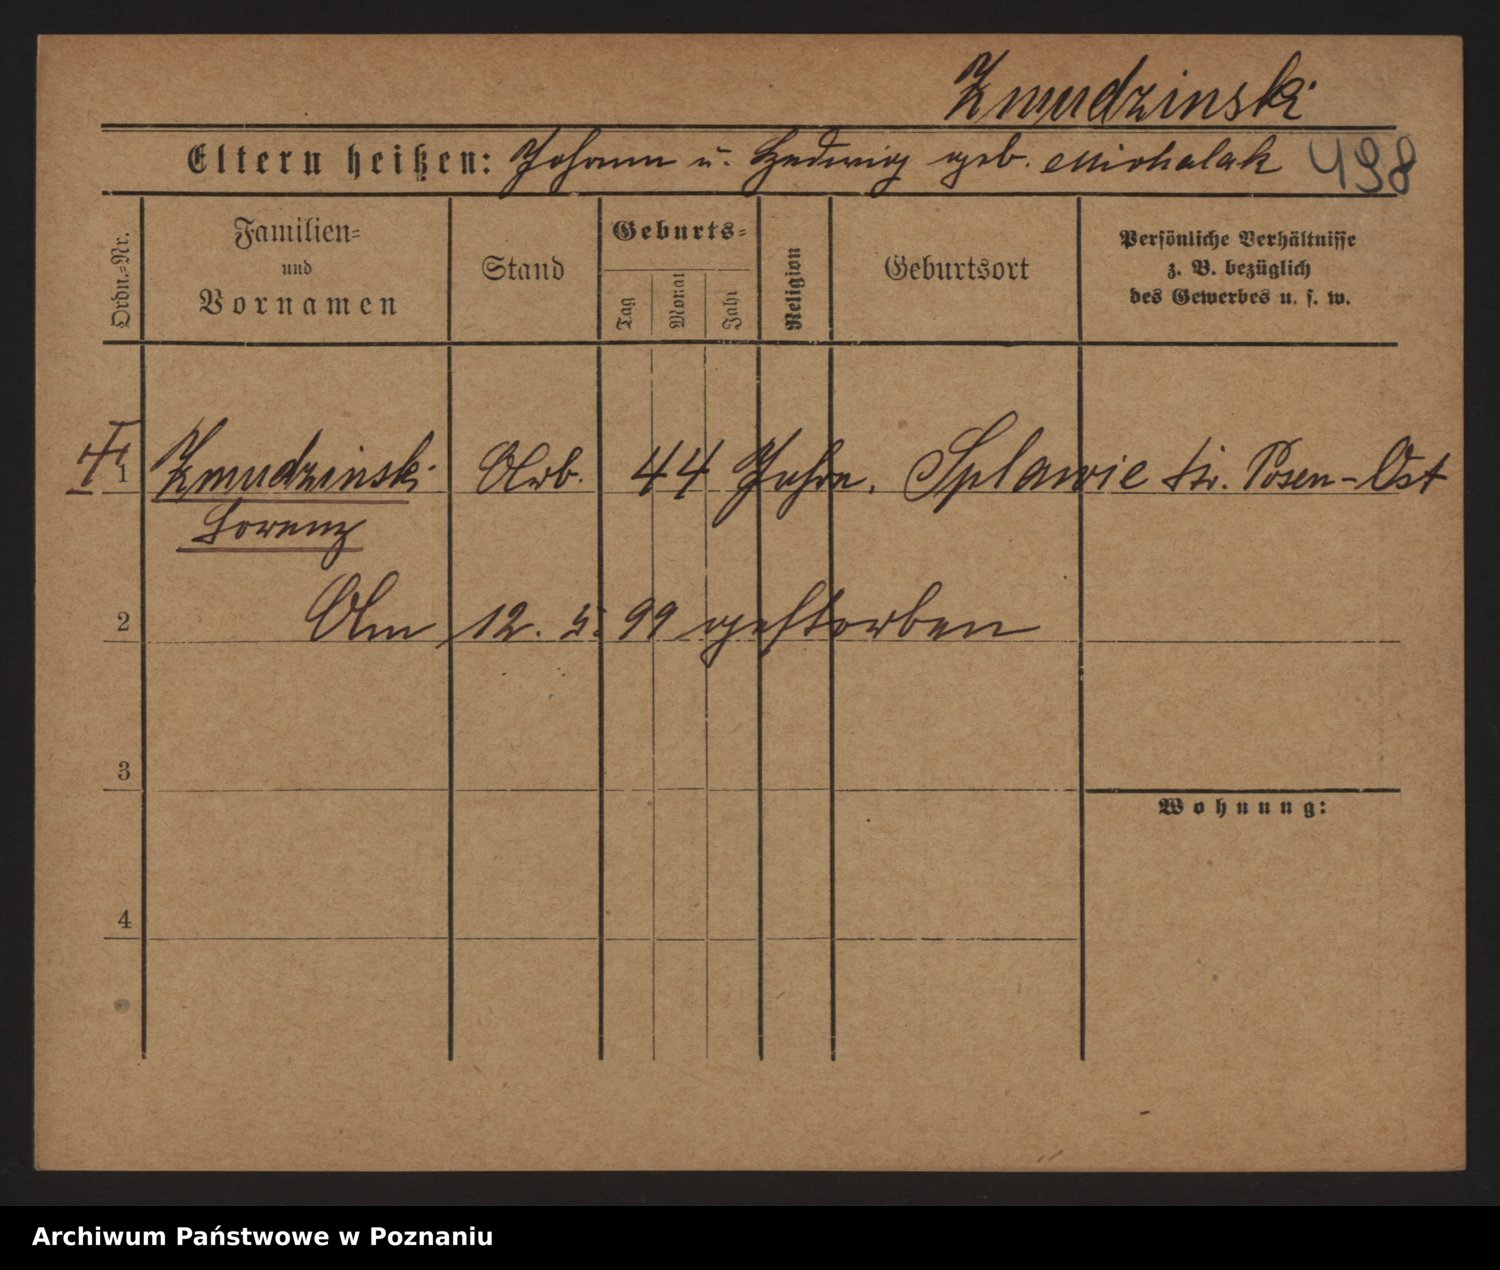 Zmudzinski
Eltern heißen: Johann u. Hedwig geb. Michalak 498
Ordn.-Nr.
Familien-
und
Vornamen
Stand
Geburts-
Tag
Monat
Jahr
Religion
Geburtsort
Persönliche Verhältnisse
z. B. bezüglich
des Gewerbes u. s. w.
1 Zmudzinski Arb. 44 Jahre. Splawie Kr. Posen-Ost
Lorenz
2 Am 12. 5. 99 gestorben
3
Wohnung:
4
Archiwum Państwowe w Poznaniu